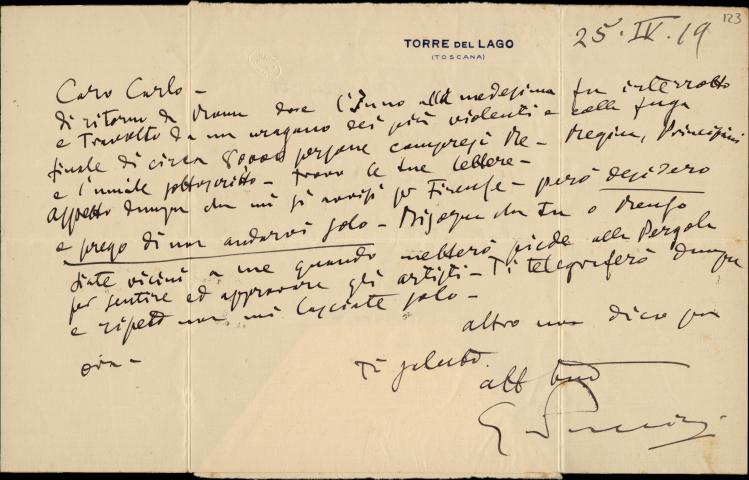 123
TORRE DEL LAGO
(TOSCANA)
25.IV.19
Caro Carlo -
di ritorno da Roma dove l'Inno alla medesima fu interrotto
e travolto da un uragano dei più violenti e colla fuga
finale di circa 80000 persone compresi Re - Regina, Principini
e l'umile sottoscritto - trovo le tue lettere -
Aspetto dunque che mi si avvisi per Firenze - però desidero
e prego di non andarvi solo - Bisogna che tu o Renzo
siate vicini a me quando metterò piede alla Pergola
per sentire ed approvare gli artisti - Ti telegraferò dunque
e ripeto non mi lasciate solo -
altro non dico per
ora -
Ti saluto
aff tuo
G Puccini